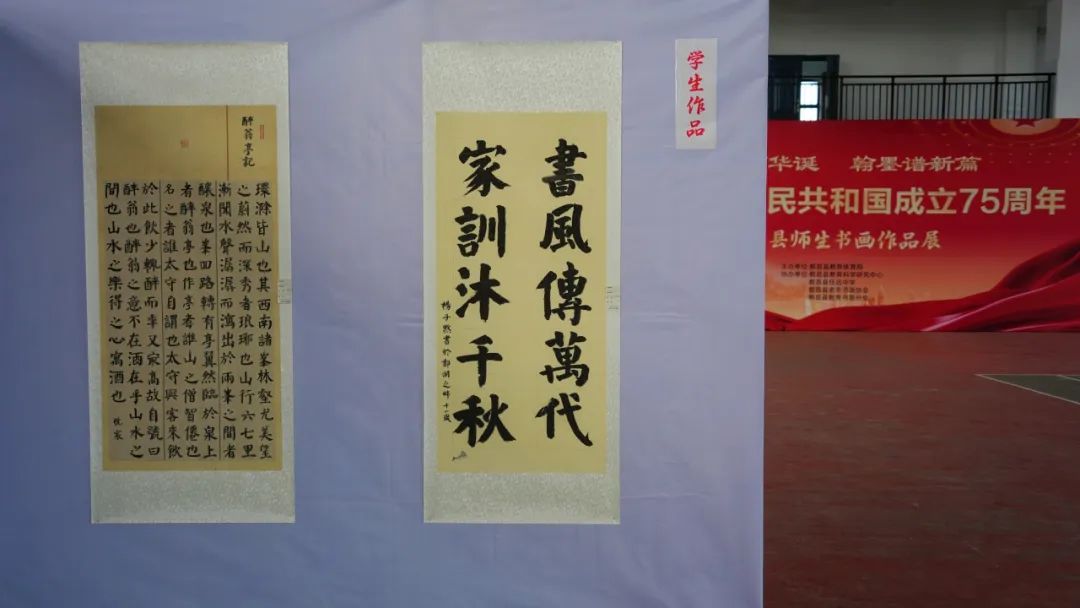 醉翁亭記
環滁皆山也其西南諸峯林壑尤美望
之蔚然而深秀者琅琊也山行六七里
漸聞水聲潺潺而瀉出於兩峯之間者
釀泉也峯回路轉有亭翼然臨於泉上
者醉翁亭也作亭者誰山之僧智僊也
名之者誰太守自謂也太守與客來飲
於此飲少輒醉而年又最高故自號曰
醉翁也醉翁之意不在酒在乎山水之
間也山水之樂得之心寓酒也
書風傳萬代
家訓沐千秋
学生作品
华诞 翰墨谱新篇
民共和国成立75周年
县师生书画作品展